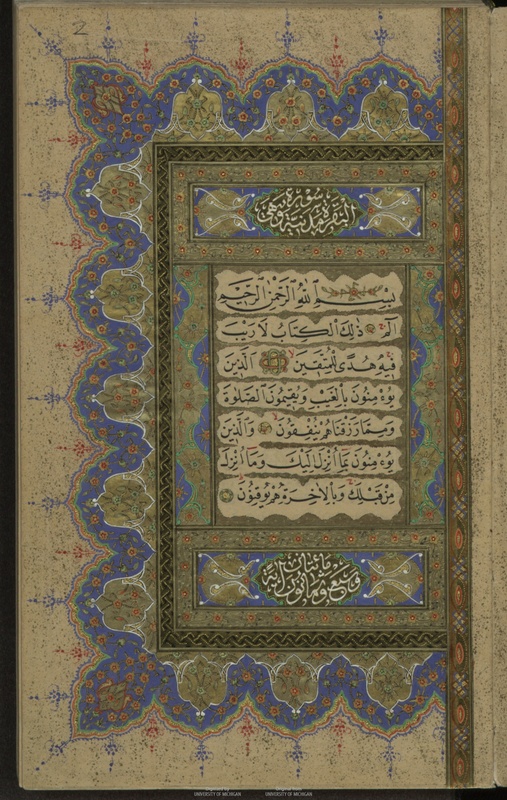 2
سورة
البقرة مدنية وهى
بِسْمِ ٱللّٰهِ ٱلرَّحْمٰنِ ٱلرَّحِيمِ
الٓمٓ ذٰلِكَ ٱلْكِتَابُ لَا رَيْبَ
فِيهِ هُدًى لِلْمُتَّقِينَ اَلَّذِينَ
يُؤْمِنُونَ بِالْغَيْبِ وَيُقِيمُونَ الصَّلٰوةَ
وَمِمَّا رَزَقْنَاهُمْ يُنْفِقُونَ وَالَّذِينَ
يُؤْمِنُونَ بِمَا اُنْزِلَ اِلَيْكَ وَمَا اُنْزِلَ
مِنْ قَبْلِكَ وَبِالْاٰخِرَةِ هُمْ يُوقِنُونَ
مائتان
وسبع وثمانون اية
UNIVERSITY OF MICHIGAN
UNIVERSITY OF MICHIGAN